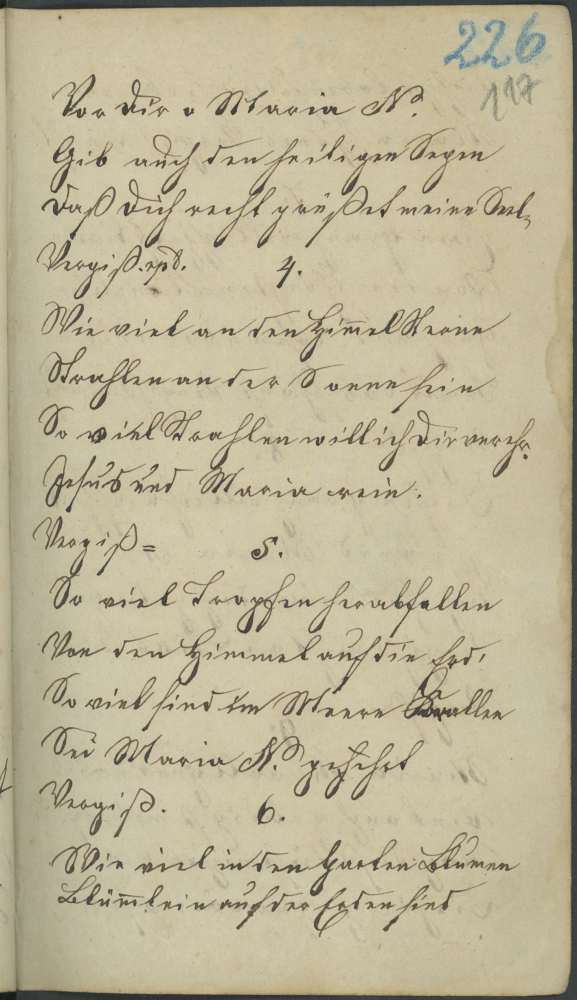 226
117
Vor dir o Maria N.
Gib auch den heiligen Segen
Daß dich recht grüßet meine Seel,
Vergiß.
4.
Wie viel an den Him̄el Sterne
Strahlen an der Sonne sein
So viel Strahlen will ich dir verehr.
Jesus und Maria rein.
Vergiß =
5.
So viel Tropfen herabfallen
Von den Himmel auf die Erd,
So viel sind im Meere Korallen
Sei Maria N. geehrt
Vergiß.
6.
Wie viel in den Garten Blumen
Blüm̄lein auf der Erden sind